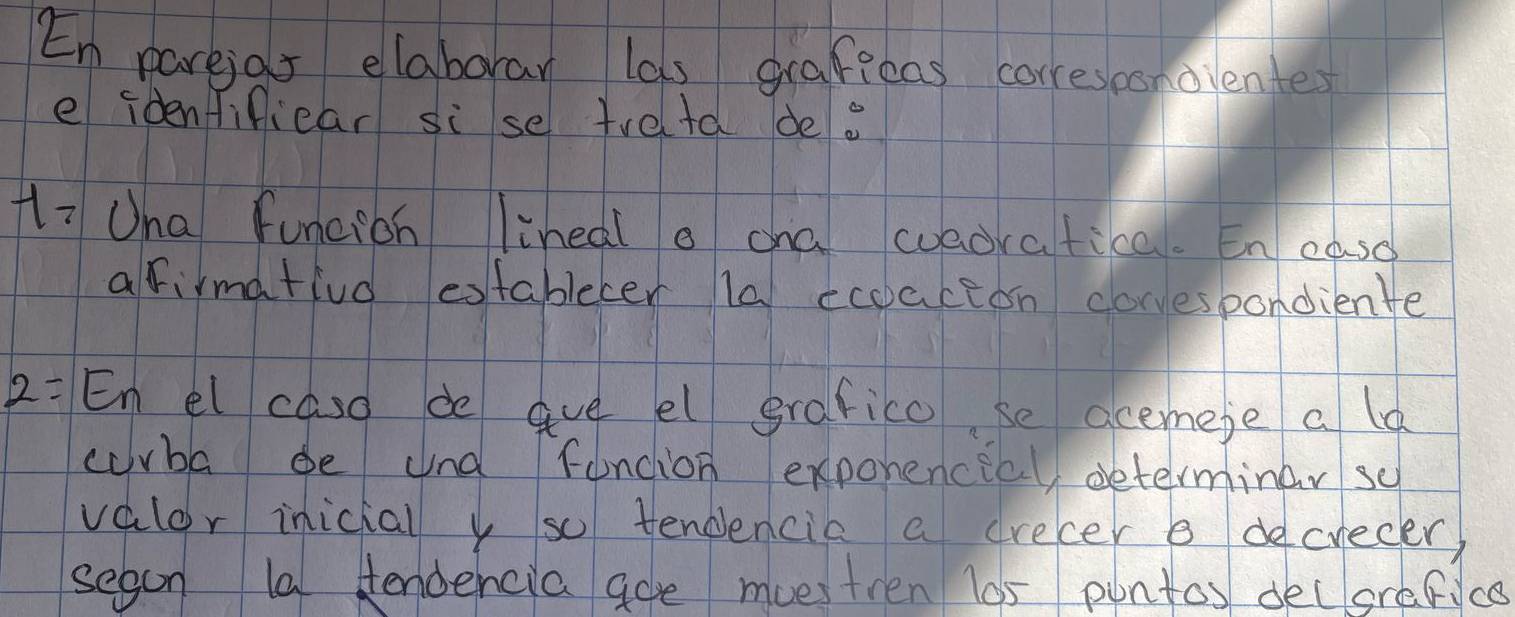 En parejas elaborar las graficas correspondientes
e identificar si se trata de:
1= Una función lineal o una cuadratica. En caso
afirmativo establecer la ecuación correspondiente
2= En el caso de que el grafico se acemeje a la
curba de una función exponencial, determinar su
valor inicial y su tendencia a crecer o decrecer,
segun la tendencia que muestren los puntos del grafico